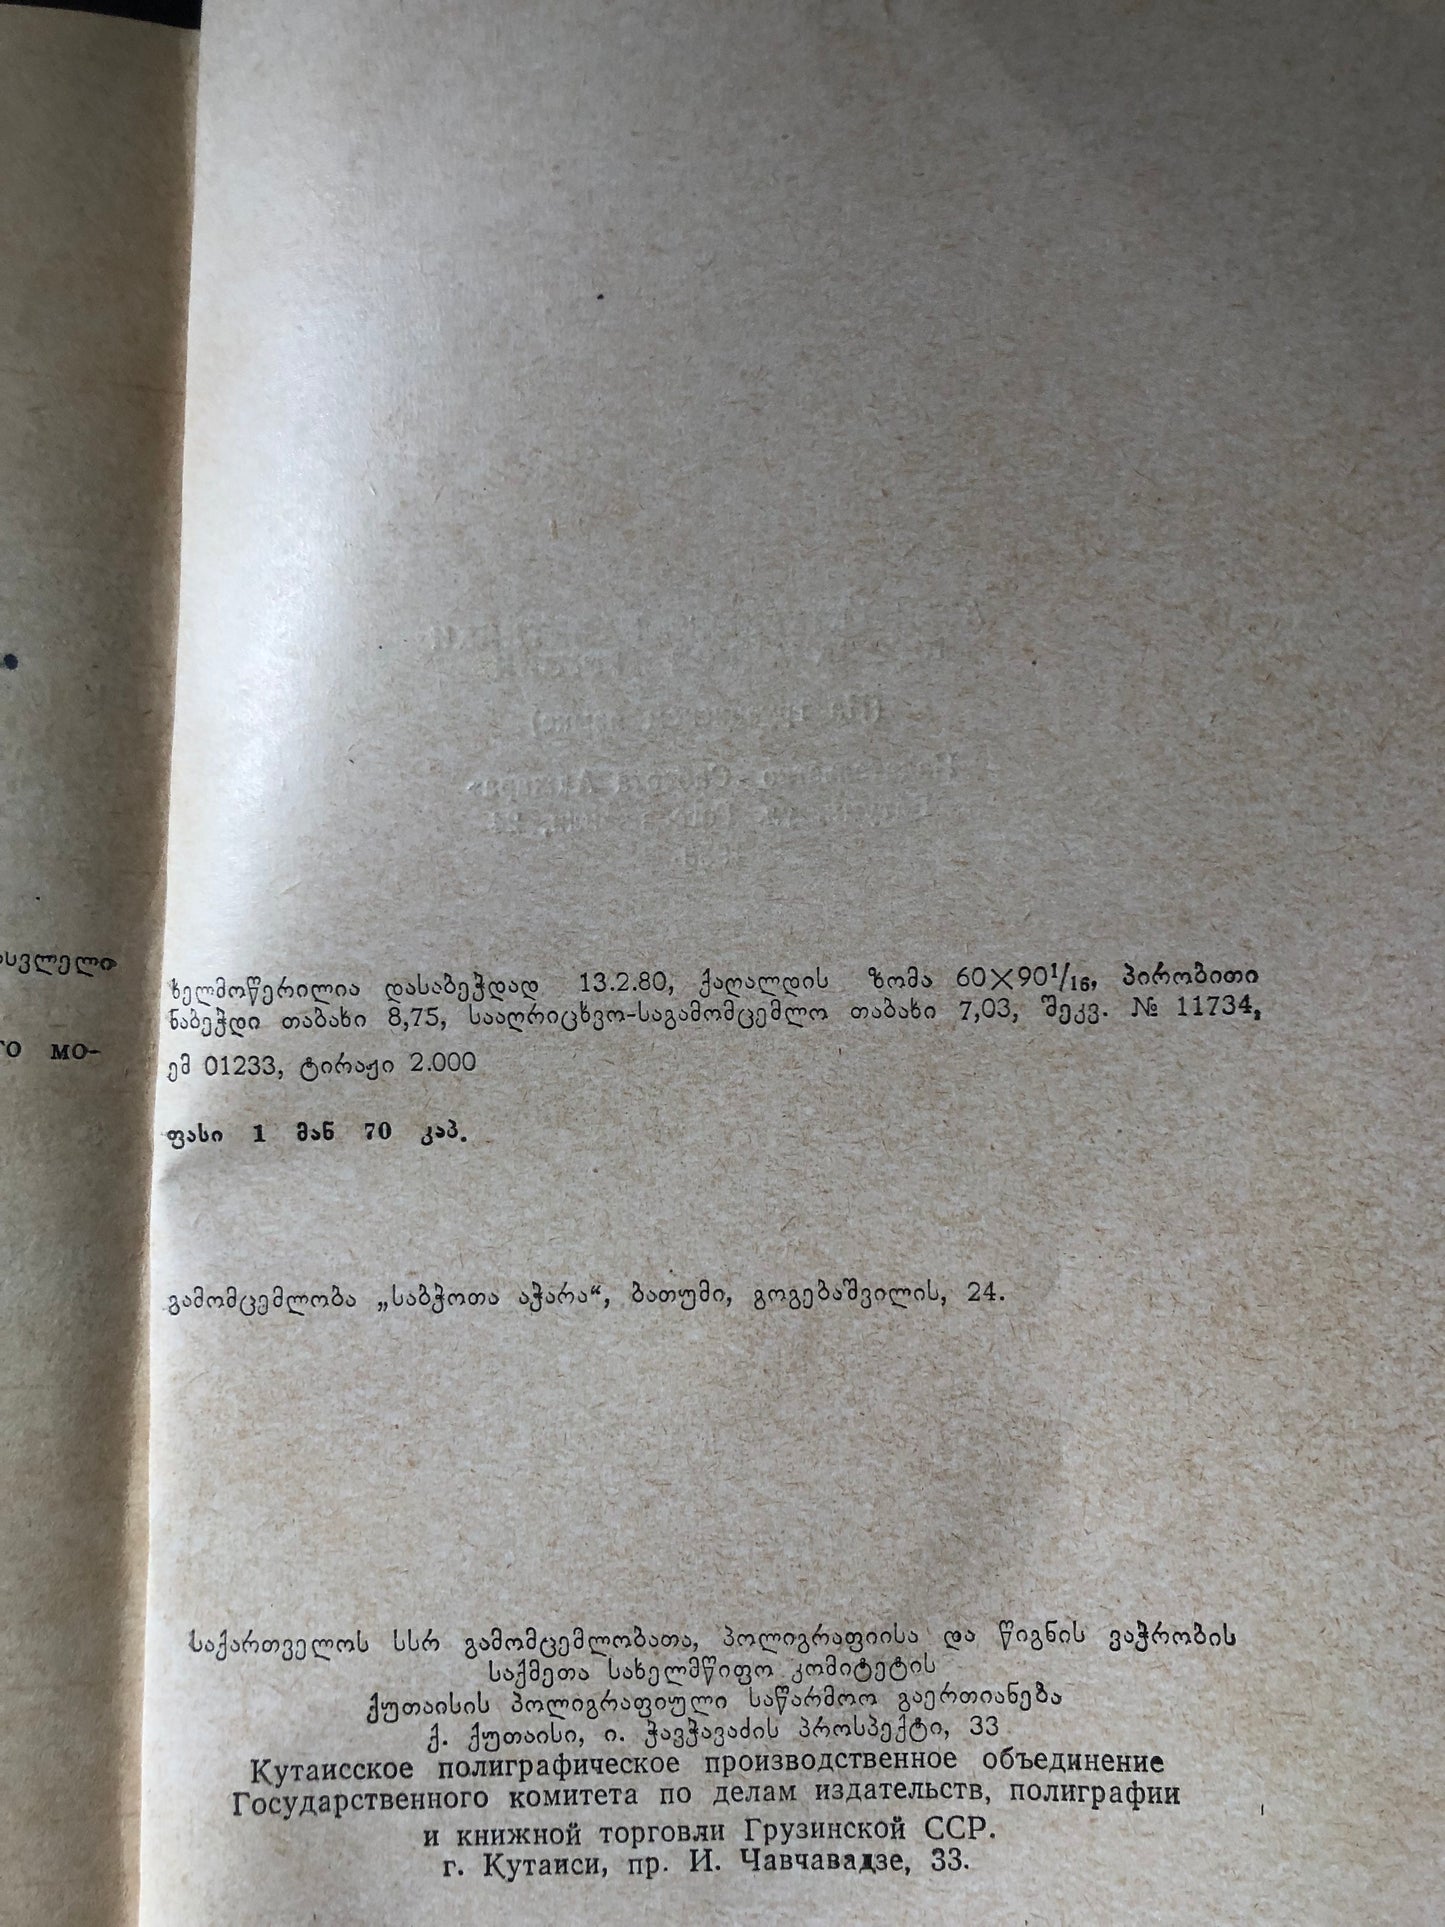 სვლელი
მო-
ხელმოწერილია დასაბეჭდად 13.2.80, ქაღალდის ზომა 60×90¹/₁₆, პირობითი
ნაბეჭდი თაბახი 8,75, სააღრიცხვო-საგამომცემლო თაბახი 7,03, შეკვ. № 11734,
ემ 01233, ტირაჟი 2.000
ფასი 1 მან 70 კაპ.
გამომცემლობა „საბჭოთა აჭარა“, ბათუმი, გოგებაშვილის, 24.
საქართველოს სსრ გამომცემლობათა, პოლიგრაფიისა და წიგნის ვაჭრობის
საქმეთა სახელმწიფო კომიტეტის
ქუთაისის პოლიგრაფიული საწარმოო გაერთიანება
ქ. ქუთაისი, ი. ჭავჭავაძის პროსპექტი, 33
Кутаисское полиграфическое производственное объединение
Государственного комитета по делам издательств, полиграфии
и книжной торговли Грузинской ССР.
г. Кутаиси, пр. И. Чавчавадзе, 33.